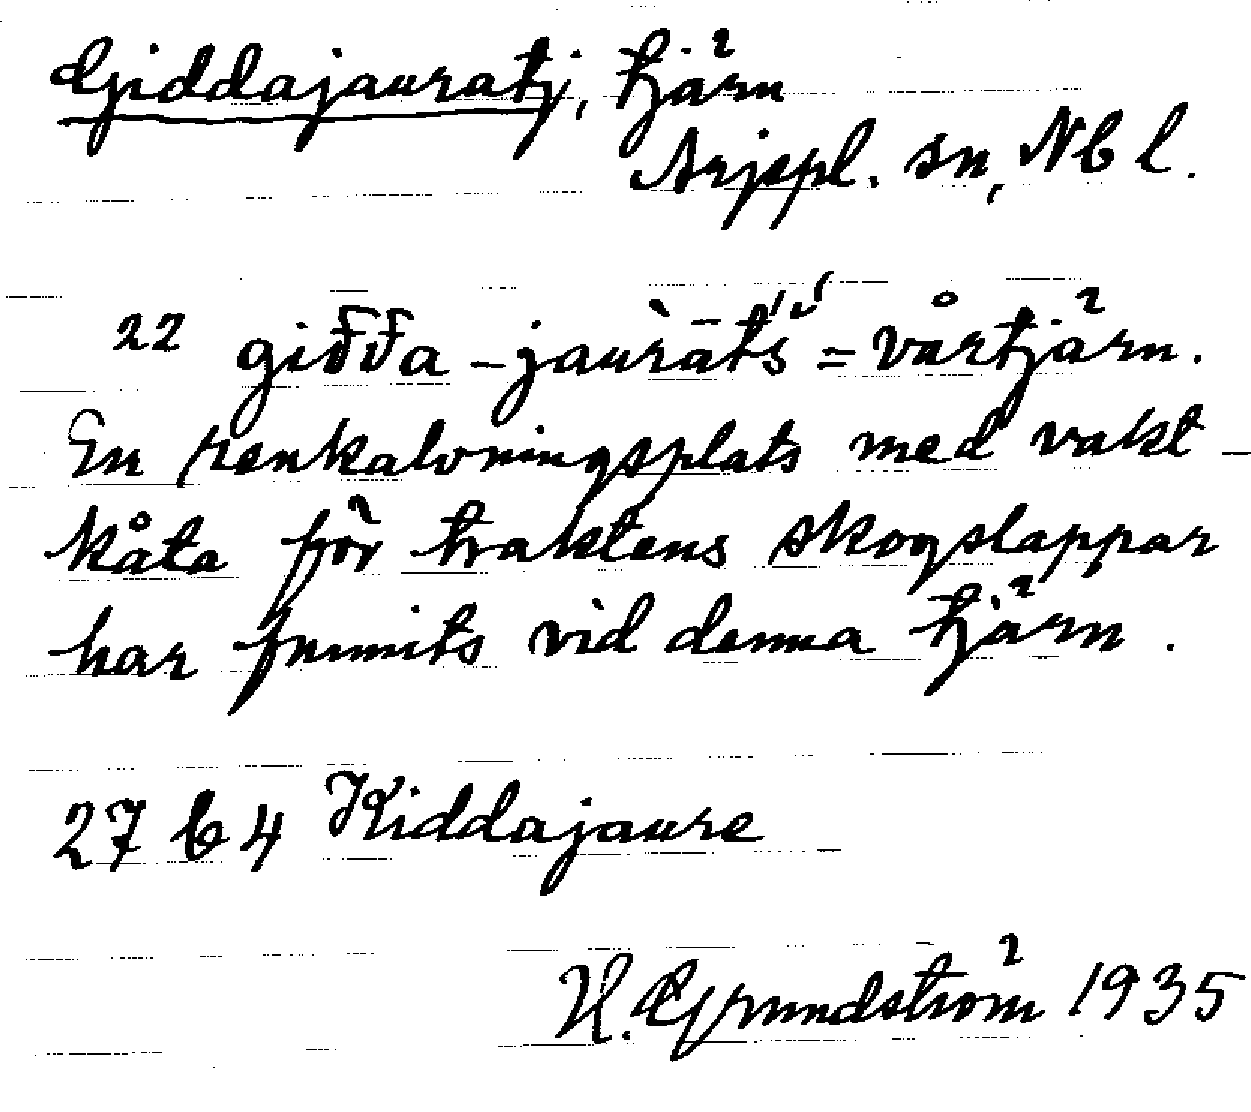 Giddajauratj, tjärn
Arjepl. sn, Nb l.
22 giđđa-jaurāts´ = vårtjärn.
En renkalvningsplats med vakt-
kåta för traktens skogslappar
har funnits vid denna tjärn.
27 b 4 Kiddajaure
H. Grundström 1935